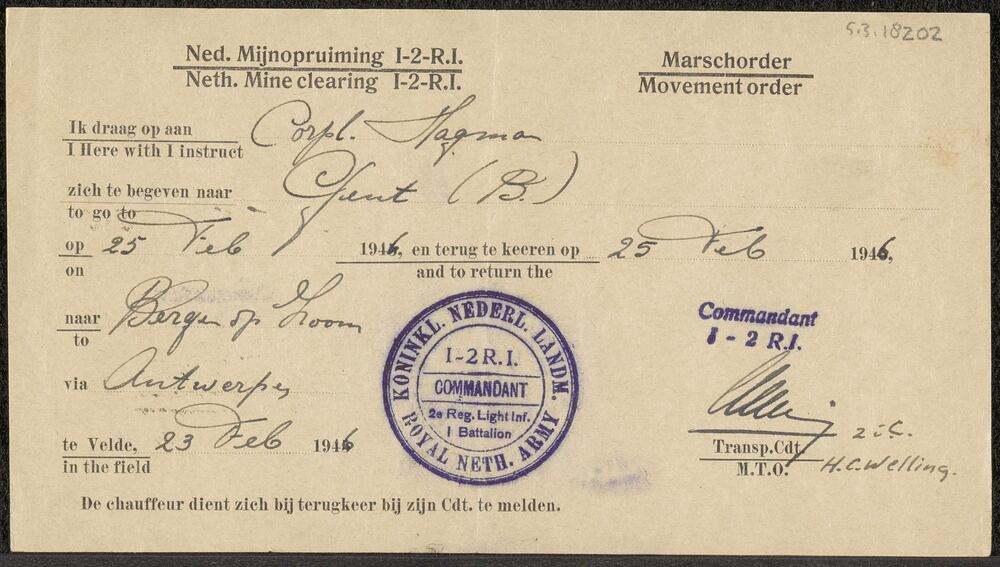 5.3.18202
Ned. Mijnopruiming I-2-R.I.
Neth. Mine clearing I-2-R.I.
Marschorder
Movement order
Ik draag op aan Corpl. Hagman
I Here with I instruct
zich te begeven naar Gent (B.)
to go to
op 25 Feb 1946, en terug te keeren op 25 Feb 1946,
on and to return the
naar Bergen op Zoom
to
via Antwerpen
te Velde, 23 Feb 1946
in the field
KONINKL. NEDERL. LANDM.
I-2 R.I.
COMMANDANT
2e Reg. Light Inf.
I Battalion
ROYAL NETH. ARMY
Commandant
I - 2 R.I.
Transp. Cdt.
M.T.O.
H.C. Welling.
De chauffeur dient zich bij terugkeer bij zijn Cdt. te melden.